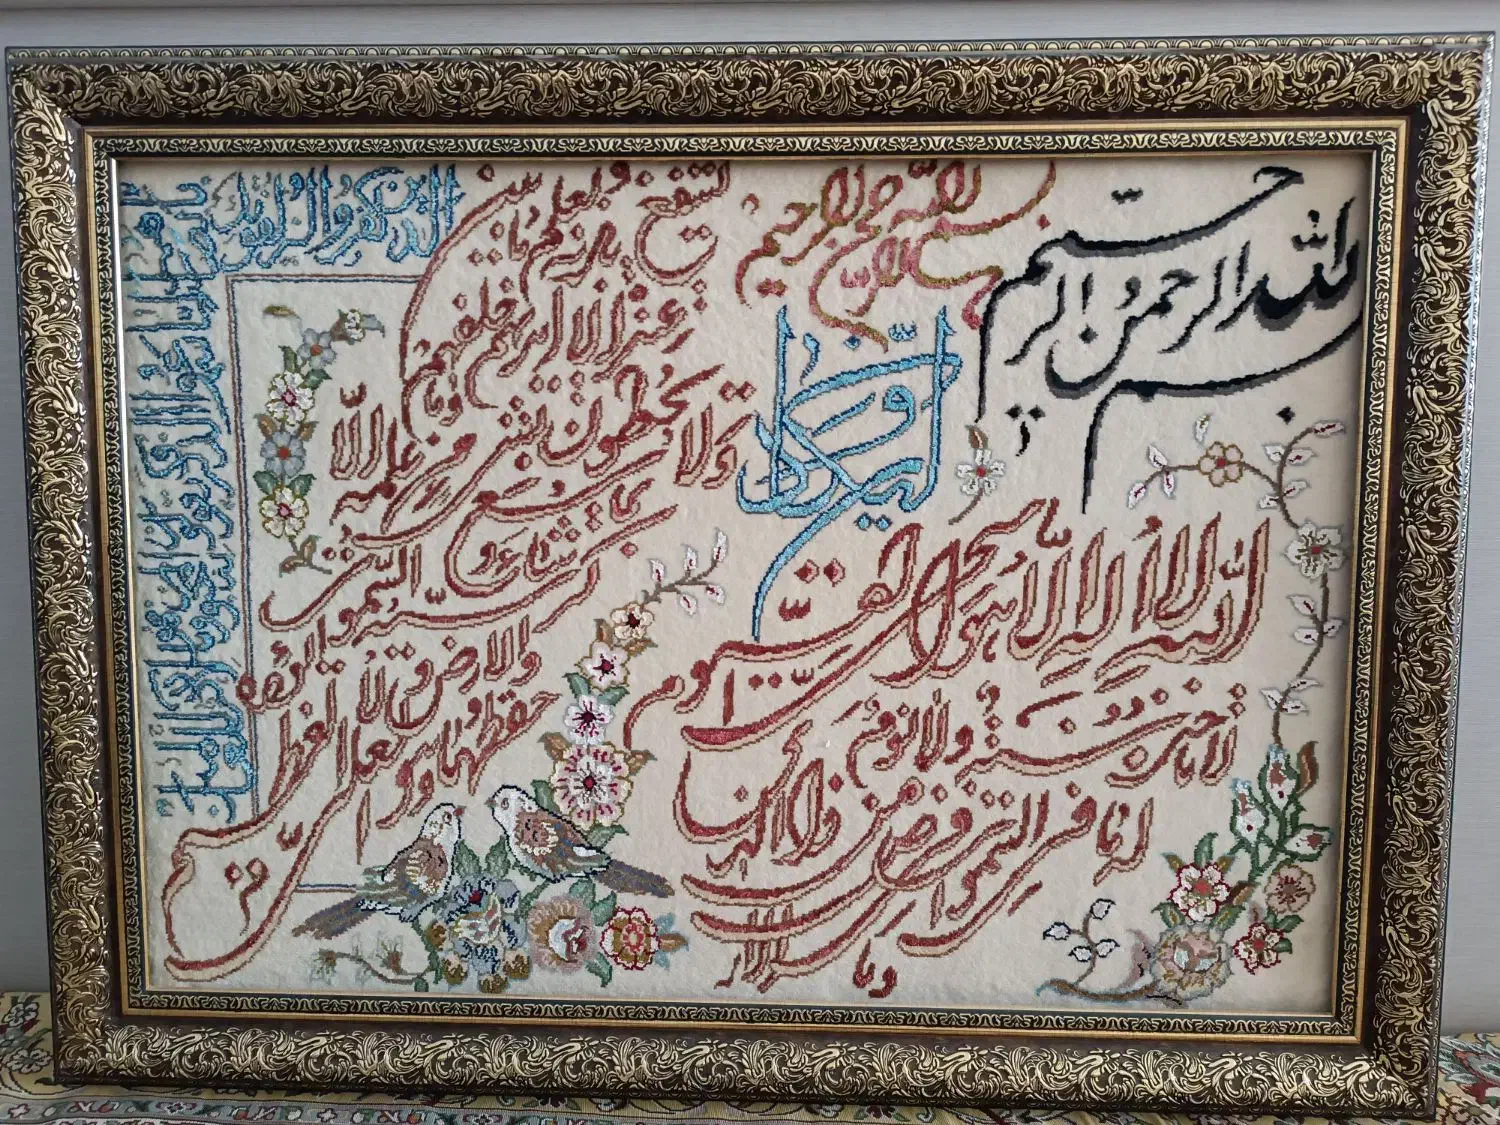 بسم الله الرحمن الرحیم
بسم الله الرحمن الرحیم
وان یکاد
الذین کفروا
الله لا اله الا هو الحی القیوم
لا تاخذه سنة ولا نوم
له ما فی السموات وما فی الارض من ذا الذی
یشفع عنده الا باذنه یعلم ما بین ایدیهم وما خلفهم
ولا یحیطون بشیء من علمه الا
بما شاء وسع کرسیه السموات
والارض ولا یؤده
حفظهما وهو العلی العظیم